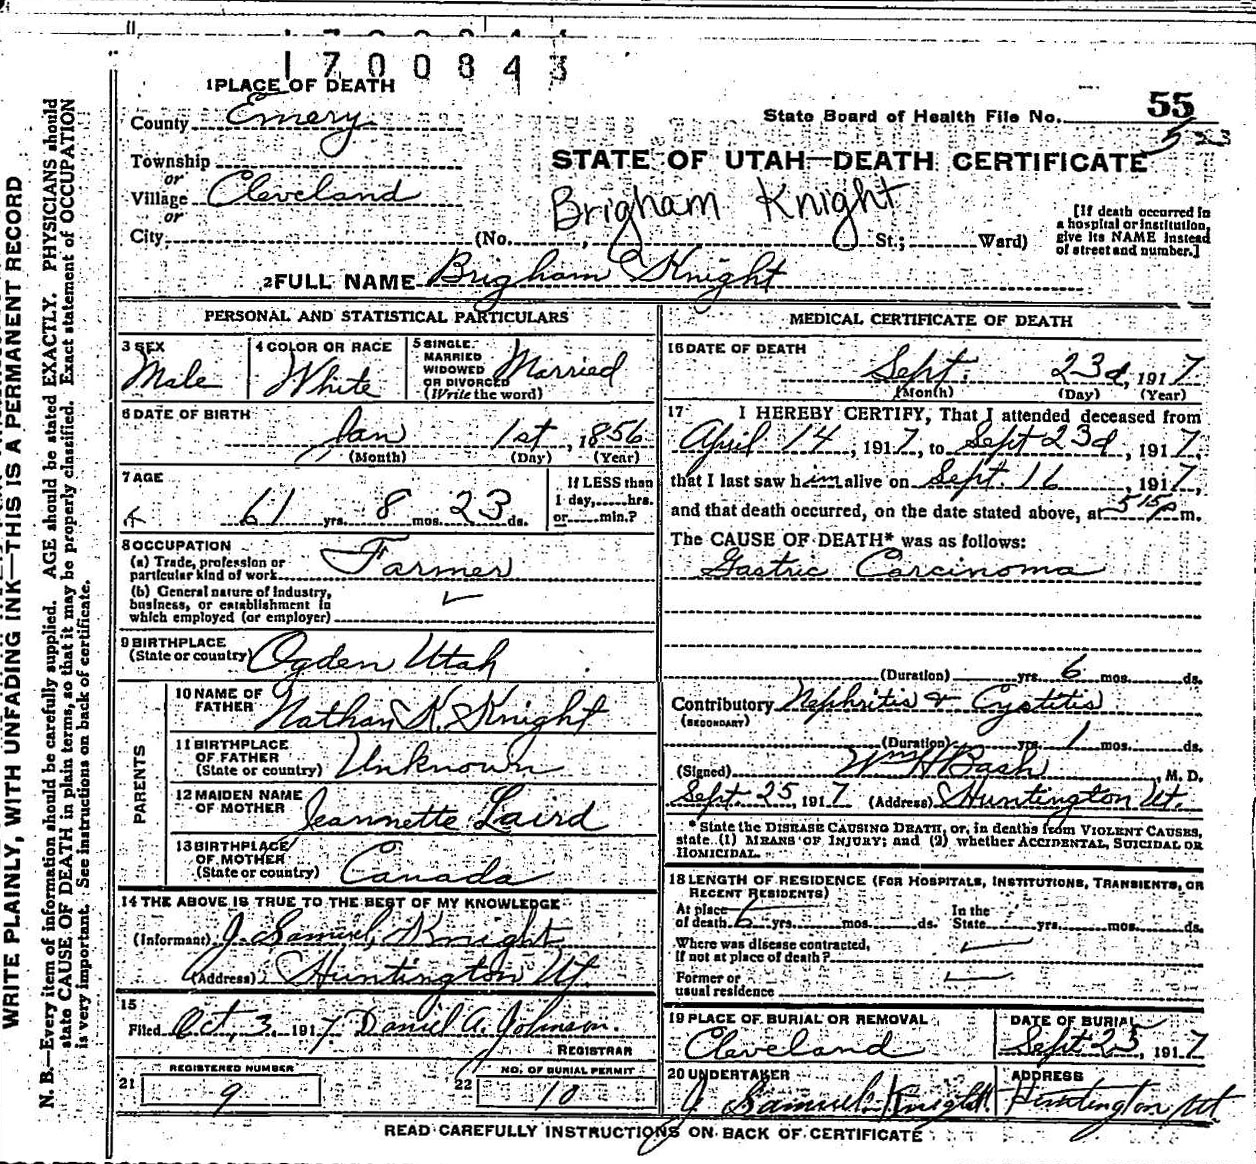 1700843
1 PLACE OF DEATH
County Emery
State Board of Health File No. 55
Township
or
Village Cleveland
or
City (No. , St.; Ward)
STATE OF UTAH—DEATH CERTIFICATE
Brigham Knight
[If death occurred in
a hospital or institution,
give its NAME instead
of street and number.]
2 FULL NAME Brigham Knight
PERSONAL AND STATISTICAL PARTICULARS
3 SEX
Male
4 COLOR OR RACE
White
5 SINGLE
MARRIED
WIDOWED
OR DIVORCED
(Write the word)
Married
6 DATE OF BIRTH
Jan 1st, 1856
(Month) (Day) (Year)
7 AGE
61 yrs. 8 mos. 23 ds.
If LESS than
1 day,......hrs.
or......min.?
8 OCCUPATION
(a) Trade, profession or
particular kind of work Farmer
(b) General nature of industry,
business, or establishment in
which employed (or employer)
9 BIRTHPLACE
(State or country) Ogden Utah
PARENTS
10 NAME OF
FATHER Nathan K. Knight
11 BIRTHPLACE
OF FATHER
(State or country) Unknown
12 MAIDEN NAME
OF MOTHER Jeannette Laird
13 BIRTHPLACE
OF MOTHER
(State or country) Canada
14 THE ABOVE IS TRUE TO THE BEST OF MY KNOWLEDGE
(Informant) J. Samuel Knight
(Address) Huntington Ut.
15
Filed Oct, 3, 1917 Daniel A. Johnson.
REGISTRAR
21 REGISTERED NUMBER
9
22 NO. OF BURIAL PERMIT
10
MEDICAL CERTIFICATE OF DEATH
16 DATE OF DEATH
Sept. 23d, 1917
(Month) (Day) (Year)
17 I HEREBY CERTIFY, That I attended deceased from
April 14, 1917, to Sept 23d, 1917,
that I last saw him alive on Sept. 16, 1917,
and that death occurred, on the date stated above, at 5 15 P m.
The CAUSE OF DEATH* was as follows:
Gastric Carcinoma
(Duration) yrs. 6 mos. ds.
Contributory Nephritis & Cystitis
(SECONDARY)
(Duration) yrs. 1 mos. ds.
(Signed) Wm H Bash, M. D.
Sept. 25, 1917 (Address) Huntington Ut.
* State the DISEASE CAUSING DEATH, or, in deaths from VIOLENT CAUSES,
state (1) MEANS OF INJURY; and (2) whether ACCIDENTAL, SUICIDAL OR
HOMICIDAL.
18 LENGTH OF RESIDENCE (FOR HOSPITALS, INSTITUTIONS, TRANSIENTS, OR
RECENT RESIDENTS)
At place
of death 6 yrs. mos. ds.
In the
State yrs. mos. ds.
Where was disease contracted,
if not at place of death?
Former or
usual residence
19 PLACE OF BURIAL OR REMOVAL
Cleveland
DATE OF BURIAL
Sept 25, 1917
20 UNDERTAKER
J Samuel Knight
ADDRESS
Huntington Ut
READ CAREFULLY INSTRUCTIONS ON BACK OF CERTIFICATE
WRITE PLAINLY, WITH UNFADING INK—THIS IS A PERMANENT RECORD
N. B.—Every item of information should be carefully supplied. AGE should be stated EXACTLY. PHYSICIANS should
state CAUSE OF DEATH in plain terms, so that it may be properly classified. Exact statement of OCCUPATION
is very important. See instructions on back of certificate.